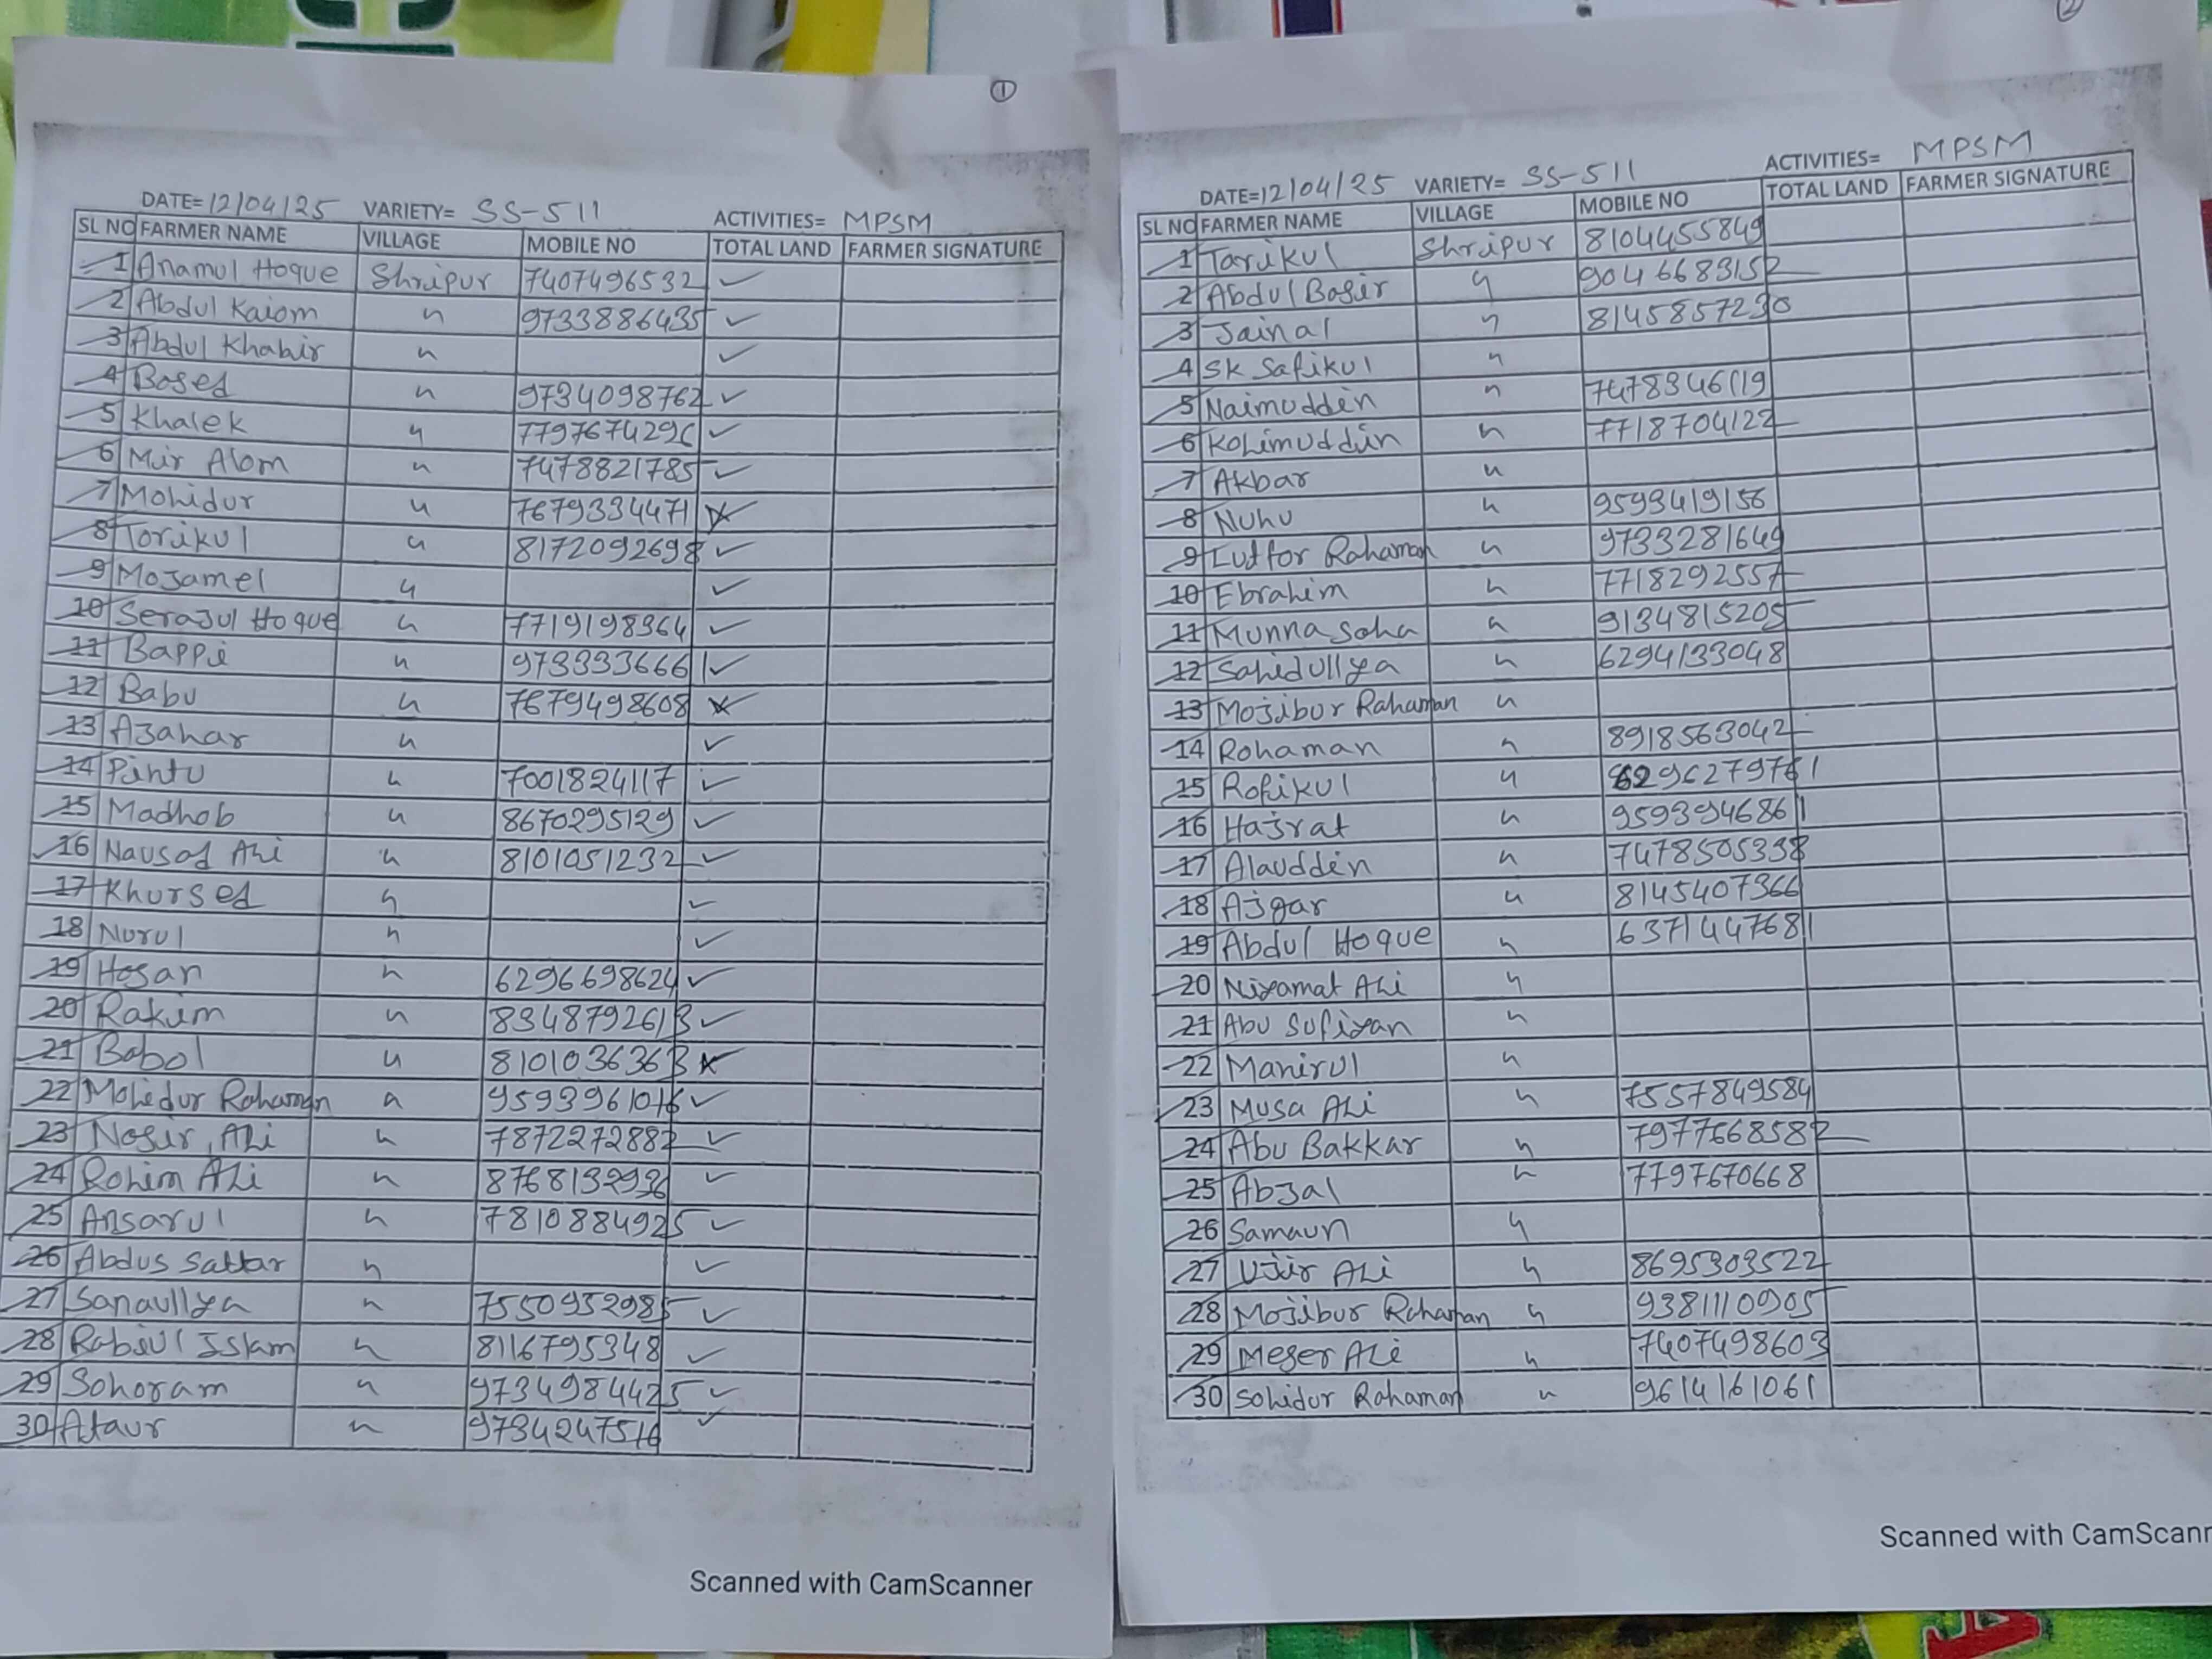 ①
DATE= 12/04/25 VARIETY= SS-511 ACTIVITIES= MPSM
SL NO FARMER NAME VILLAGE MOBILE NO TOTAL LAND FARMER SIGNATURE
1 Anamul Hoque Shripur 7407496532 ✓
2 Abdul Kaiom " 9733886435 ✓
3 Abdul Khabir " ✓
4 Bosed " 9734098762 ✓
5 Khalek " 7797674296 ✓
6 Mir Alom " 7478821785 ✓
7 Mohidur " 7679334471
8 Torikul " 8172092698 ✓
9 Mojamel " ✓
10 Serajul Hoque " 7719198364 ✓
11 Bappi " 9733336661 ✓
12 Babu " 7679498608
13 Azahar " ✓
14 Pintu " 7001824117 ✓
15 Madhob " 8670295129 ✓
16 Nausad Ali " 8101051232 ✓
17 Khursed " ✓
18 Nurul " ✓
19 Hosan " 6296698624 ✓
20 Rakim " 8348792613 ✓
21 Babol " 8101036363
22 Mohidur Rahaman " 9593961016 ✓
23 Nosir Ali " 7872272882 ✓
24 Rohim Ali " 8768132936 ✓
25 Ansarul " 7810884925 ✓
26 Abdus Sattar " ✓
27 Sanaullya " 7550952985 ✓
28 Rabiul Islam " 8116795348 ✓
29 Sohoram " 9734984425 ✓
30 Ataur " 9734247516 ✓
Scanned with CamScanner
②
DATE= 12/04/25 VARIETY= SS-511 ACTIVITIES= MPSM
SL NO FARMER NAME VILLAGE MOBILE NO TOTAL LAND FARMER SIGNATURE
1 Tarikul Shripur 8104455849
2 Abdul Basir " 9046683152
3 Jainal " 8145857230
4 SK Safikul "
5 Naimuddin " 7478346119
6 Kolimuddin " 7718704122
7 Akbar "
8 Nuhu " 9593419156
9 Lutfor Rahaman " 9733281649
10 Ebrahim " 7718292557
11 Munna Soha " 9134815205
12 Sahidullya " 6294133048
13 Mojibur Rahaman "
14 Rohaman " 8918563042
15 Rofikul " 6296279761
16 Hajrat " 9593946861
17 Alauddin " 7478505338
18 Ajgar " 8145407366
19 Abdul Hoque " 6371447681
20 Niyamat Ali "
21 Abu Sufiyan "
22 Manirul "
23 Musa Ali " 7557849584
24 Abu Bakkar " 7977668582
25 Abjal " 7797670668
26 Samaun "
27 Ujir Ali " 8695303522
28 Mojibur Rahaman " 9381110905
29 Meger Ali " 7407498603
30 Sohidur Rahaman " 9614161061
Scanned with CamScanr